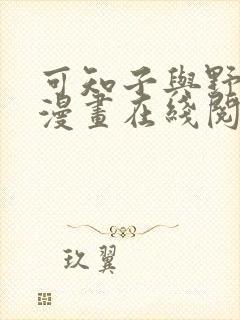 可知子與野
漫畫在綫閱
玖翼